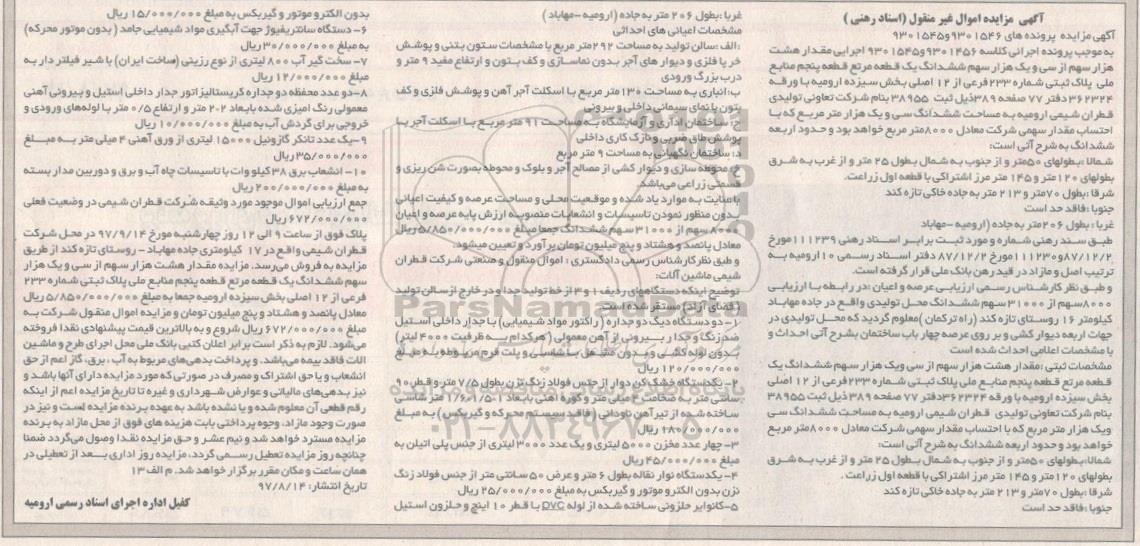 آگهی مزایده اموال غیر منقول (اسناد رهنی)
آگهی مزایده پرونده های ۹۳۰۱۵۴۶و۹۳۰۱۵۴۵
به موجب پرونده اجرائی کلاسه ۹۳۰۱۴۵۶و۹۳۰۱۵۴۵ اجرایی مقدار هشت
هزار سهم از سی و یک هزار سهم ششدانگ یک قطعه مرتع قطعه پنجم منابع
ملی پلاک ثبتی شماره ۲۳۳فرعی از ۱۲ اصلی بخش سیزده ارومیه با ورقه
۳۶۲۳۲۴ دفتر ۷۷ صفحه ۳۸۹ذیل ثبت ۳۸۹۵۵ بنام شرکت تعاونی تولیدی
قطران شیمی ارومیه به مساحت ششدانگ سی و یک هزار متر مربع که با
احتساب مقدار سهمی شرکت معادل ۸۰۰۰متر مربع خواهد بود و حدود اربعه
ششدانگ به شرح آتی است:
شمالا :بطولهای ۵۰متر و از جنوب به شمال بطول ۲۵ متر و از غرب به شرق
بطولهای ۱۲۰متر و ۱۴۵ متر مرز اشتراکی با قطعه اول زراعت.
شرقا :بطول ۷۰متر و ۲۱۳ متر به جاده خاکی تازه کند
جنوبا :فاقد حد است
غربا : بطول ۲۰۶متر به جاده (ارومیه -مهاباد
طبق سند رهنی شماره و مورد ثبت برابر اسناد رهنی ۱۱۱۲۳۹مورخ
۸۷/۱۲/۲و۱۱۱۲۳۰مورخ ۸۷/۱۲/۲ دفتر اسناد رسمی ۱۰ارومیه به
ترتیب اصل و مازاد در قید رهن بانک ملی قرار گرفته است.
و طبق نظر کارشناس رسمی ارزیابی عرصه و اعیان :در رابطه با ارزیابی
۸۰۰۰سهم از ۳۱۰۰۰ سهم ششدانگ محل تولیدی واقع در جاده مهاباد
کیلومتر ۱۶ روستای تازه کند (راه ترکمان )معلوم گردید که محل تولیدی در
جهات اربعه دیوار کشی و بر روی عرصه چهار باب ساختمان بشرح آتی احداث و
با مشخصات اعلامی احداث شده است
مشخصات ثبتی :مقدار هشت هزار سهم از سی ویک هزار سهم ششدانگ یک
قطعه مرتع قطعه پنجم منابع ملی پلاک ثبتی شماره ۲۳۳فرعی از ۱۲ اصلی
بخش سیزده ارومیه با ورقه ۳۶۲۳۲۴دفتر ۷۷ صفحه ۳۸۹ ذیل ثبت ۳۸۹۵۵
بنام شرکت تعاونی تولیدی قطران شیمی ارومیه به مساحت ششدانگ سی
ویک هزار متر مربع که با احتساب مقدار سهمی شرکت معادل ۸۰۰۰متر مربع
خواهد بود و حدود اربعه ششدانگ به شرح آتی است:
شمالا:بطولهای ۵۰متر و از جنوب به شمال بطول ۲۵ متر و از غرب به شرق
بطولهای ۱۲۰متر و ۱۴۵ متر مرز اشتراکی با قطعه اول زراعت.
شرقا :بطول ۷۰متر و ۲۱۳ متر به جاده خاکی تازه کند
جنوبا :فاقد حد است
غربا :بطول ۲۰۶ متر به جاده (ارومیه -مهاباد )
مشخصات اعیانی های احداثی
:الف :سالن تولید به مساحت ۲۹۲متر مربع با مشخصات ستون بتنی و پوشش
خرپا فلزی و دیوار های آجر بدون نماسازی و کف بتون و ارتفاع مفید ۹ متر و
درب بزرگ ورودی
ب:انباری به مساحت ۱۳۰ متر مربع با اسکلت آجر آهن و پوشش فلزی و کف
بتون با نمای سیمانی داخلی و بیرونی
ج: ساختمان اداری و آزمایشگاه به مساحت ۹۱ متر مربع با اسکلت آجر با
پوشش طاق ضربی و نازک کاری داخلی
د: ساختمان نگهبانی به مساحت ۹ متر مربع
محوطه سازی و دیوار کشی از مصالح آجر و بلوک و محوطه بصورت شن ریزی و
قسمتی زراعی می‌باشد.
با عنایت به موارد یاد شده و موقعیت محلی و مساحت عرصه و کیفیت اعیانی
بدون منظور نمودن تاسیسات و انشعابات منصوبه ارزش پایه عرصه و اعیان
۸۰۰۰ سهم از ۳۱۰۰۰ سهم ششدانگ جمعا مبلغ ۵/۸۵۰/۰۰۰/۰۰۰ریال
معادل پانصد و هشتاد و پنج میلیون تومان برآورد و تعیین میشود.
و طبق نظر کارشناس رسمی دادگستری : اموال منقول و صنعتی شرکت قطران
شیمی ماشین آلات:
توضیح اینکه دستگاههای ردیف ۱ و ۳ از خط تولید جدا و در خارج از سالن تولید
(فضای آزاد) مستقر شده است
۱- دو دستگاه دیگ دو جداره ( راکتور مواد شیمیایی) با جدار داخلی استیل
ضد زنگ و جدار بیرونی از آهن معمولی (هر کدام به ظرفیت ۴۰۰۰ لیتر)
بدون لوله کشی و بدون مشعل با شاسی و پلت فرم مربوطه به مبلغ
۱۲۰/۰۰۰/۰۰۰ ریال
۲- یکدستگاه خشک کن دوار از جنس فولاد زنگ نزن بطول ۷/۵ متر و قطر ۹۰
سانتی متر به ضخامت ۴ میلی متر و کوره آهنی بابعاد ۱/۵-۱/۶-۱ متر شاسی
ساخته شده از تیرآهن ناودانی (فاقد سیستم محرکه و گیربکس ) به مبلغ
۱۸۰/۰۰۰/۰۰۰ ریال
۳- چهار عدد مخزن ۵۰۰۰ لیتری و یک عدد ۳۰۰۰ لیتری از جنس پلی اتیلن به
مبلغ ۴۵/۰۰۰/۰۰۰ ریال
۴- یکدستگاه نوار نقاله بطول ۶ متر و عرض ۵۰ سانتی متر از جنس فولاد زنگ
نزن بدون الکترو موتور و گیربکس به مبلغ ۲۵/۰۰۰/۰۰۰ ریال
۵-کانوایر حلزونی ساخته شده از لوله pvc با قطر ۱۰ اینچ و حلزون استیل
بدون الکترو موتور و گیربکس به مبلغ ۱۵/۰۰۰/۰۰۰ ریال
۶- دستگاه سانتریفیوژ جهت آبگیری مواد شیمیایی جامد ( بدون موتور محرکه)
به مبلغ ۳۰/۰۰۰/۰۰۰ ریال
۷- سخت گیر آب ۸۰۰ لیتری از نوع رزینی (ساخت ایران) با شیر فیلتر دار به
مبلغ ۱۲/۰۰۰/۰۰۰ ریال
۸- دو عدد محفظه دو جداره کریستالیزاتور جدار داخلی استیل و بیرونی آهنی
معمولی رنگ آمیزی شده بابعاد ۲۰۲ متر و ارتفاع ۰/۵ متر با لوله‌های ورودی و
خروجی برای گردش آب به مبلغ ۱۰/۰۰۰/۰۰۰ ریال
۹-یک عدد تانکر گازوئیل ۱۵۰۰۰ لیتری از ورق آهنی ۴ میلی متر به مبلغ
۳۵/۰۰۰/۰۰۰ ریال
۱۰- انشعاب برق ۳۸ کیلو وات با تاسیسات چاه آب و برق و دوربین مدار بسته
به مبلغ ۲۰۰/۰۰۰/۰۰۰ ریال
جمع ارزیابی اموال موجود مورد وثیقه شرکت قطران شیمی در وضعیت فعلی
۶۷۲/۰۰۰/۰۰۰ ریال
پلاک فوق از ساعت ۹ الی ۱۲ روز چهارشنبه مورخ ۹۷/۹/۱۴ در محل شرکت
قطران شیمی واقع در ۱۷ کیلومتری جاده مهاباد – روستای تازه کند از طریق
مزایده به فروش می‌رسد. مزایده مقدار هشت هزار سهم از سی و یک هزار
سهم ششدانگ یک قطعه مرتع قطعه پنجم منابع ملی پلاک ثبتی شماره ۲۳۳
فرعی از ۱۲ اصلی بخش سیزده ارومیه جمعا به مبلغ ۵/۸۵۰/۰۰۰/۰۰۰ ریال
معادل پانصد و هشتاد و پنج میلیون تومان و مزایده اموال منقول شرکت به
مبلغ ۶۷۲/۰۰۰/۰۰۰ ریال شروع و به بالاترین قیمت پیشنهادی نقدا فروخته
می‌شود. لازم به ذکر است برابر اعلان کتبی بانک ملی محل اجرای طرح و ماشین
آلات فاقد بیمه می‌باشد. و پرداخت بدهی‌های مربوط به آب ، برق، گاز اعم از حق
انشعاب و یا حق اشتراک و مصرف در صورتی که مورد مزایده دارای آنها باشد و
نیز بدهی‌های مالیاتی و عوارض شهرداری و غیره تا تاریخ مزایده اعم از اینکه
رقم قطعی آن معلوم شده و یا نشده باشد به عهده برنده مزایده است و نیز در
صورت وجود مازاد، وجوه پرداختی بابت هزینه های فوق از محل مازاد به برنده
مزایده مسترد خواهد شد و نیم عشر و حق مزایده نقدا وصول می‌گردد ضمنا
چنانچه روز مزایده تعطیل رسمی گردد، مزایده روز اداری بعد از تعطیلی در
همان ساعت و مکان مقرر برگزار خواهد شد. م الف ۱۳
تاریخ انتشار: ۹۷/۸/۱۴
کفیل اداره اجرای اسناد رسمی ارومیه
ParsNamadData
۰۲۱-۸۸۳۴۹۶۷۰-۵